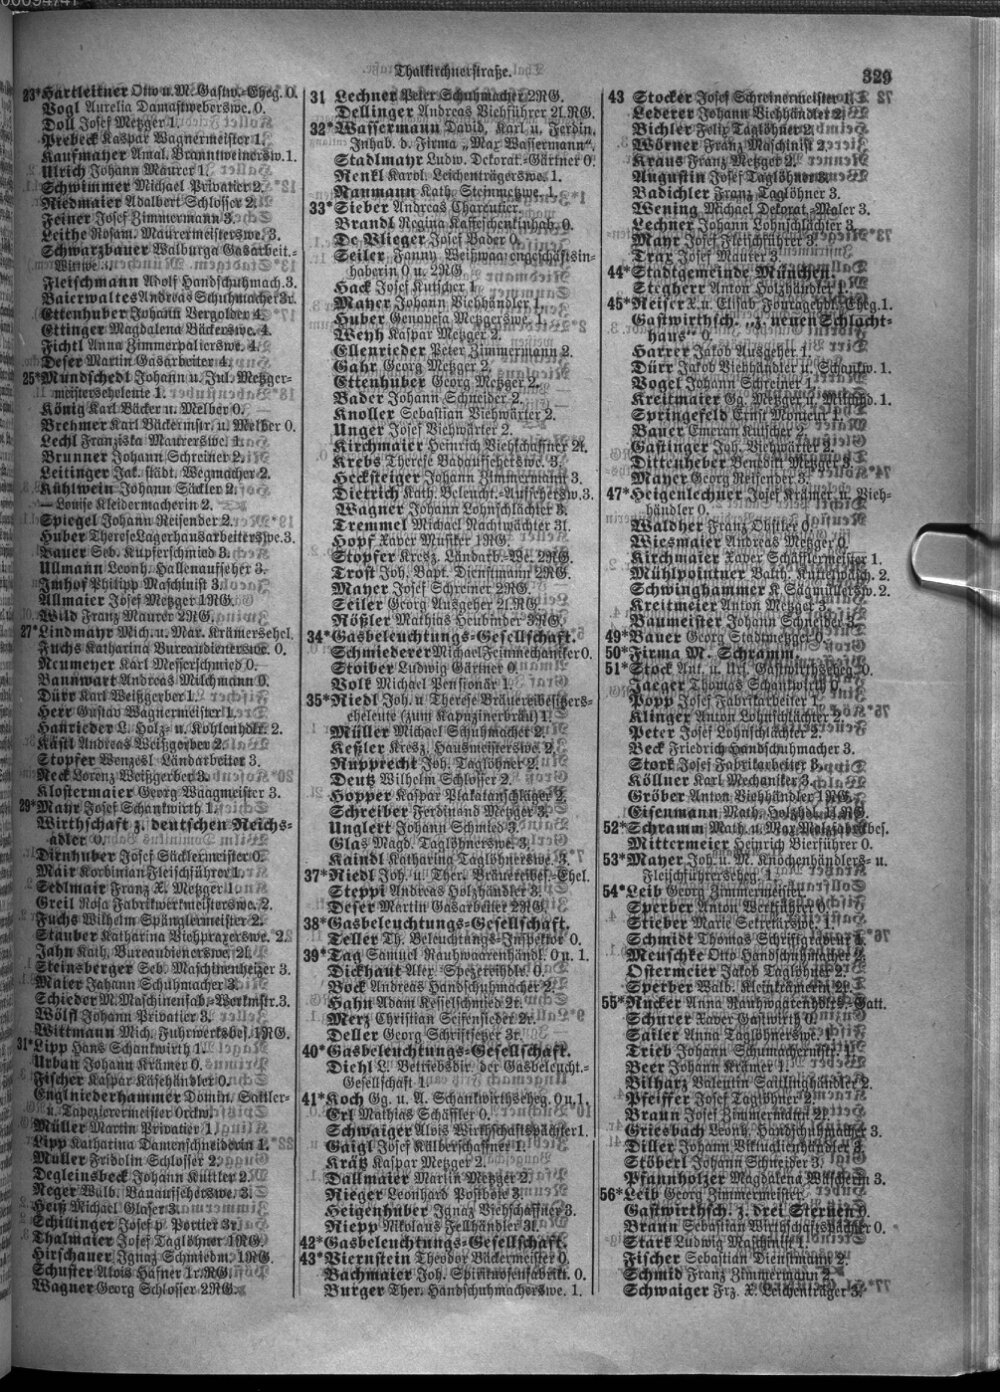 Thalkirchnerstraße.
329
23*Hartleitner Otto u. M. Gastw.-Eheg. 0.
Vogl Aurelia Damastweberswe. 0.
Doll Josef Metzger 1.
Prebeck Kaspar Wagnermeister 1.
Kaufmayer Amal. Branntweinersw. 1.
Ulrich Johann Maurer 1.
Schwimmer Michael Privatier 2.
Riedmaier Adalbert Schlosser 2.
Feiner Josef Zimmermann 3.
Leithe Rosam. Maurermeisterswe. 3.
Schwarzbauer Walburga Gasarbeit.-
Wittwe
Fleischmann Adolf Handschuhmach. 3.
Baierwaltes Andreas Schuhmacher 3r.
Ettenhuber Johann Vergolder 4.
Ettinger Magdalena Bäckerswe. 4.
Fichtl Anna Zimmerpalierswe. 4.
Deser Martin Gasarbeiter 4.
25*Mundschedl Johann u. Jul. Metzger-
meisterseheleute 1.
König Karl Bäcker u. Melber 0.
Brehmer Karl Bäckermstr. u. Melber 0.
Lechl Franziska Maurerswe. 1.
Brunner Johann Schreiner 2.
Leitinger Jak. städt. Wegmacher 2.
Kühlwein Johann Säckler 2.
— Louise Kleidermacherin 2.
Spiegel Johann Reisender 2.
Huber Therese Lagerhausarbeiterswe. 3.
Bauer Seb. Kupferschmied 3.
Ullmann Leonh. Hallenaufseher 3.
Imhof Philipp Maschinist 3.
Allmaier Josef Metzger 1RG.
Wild Franz Maurer 2RG.
27*Lindmayr Mich. u. Mar. Krämersehel.
Fuchs Katharina Bureaudienerswe. 0.
Neumeyer Karl Messerschmied 0.
Bannwart Andreas Milchmann 0.
Dürr Karl Weißgerber 1.
Herr Gustav Wagnermeister 1.
Hanrieder L. Holz- u. Kohlenhdlr. 2.
Kästl Andreas Weißgerber 2.
Stopfer Wenzesl Ländarbeiter 3.
Neck Lorenz Weißgerber 3.
Klostermaier Georg Waagmeister 3.
29*Mayr Josef Schankwirth 1.
Wirthschaft z. deutschen Reichs-
adler 0.
Dirnhuber Josef Säcklermeister 0.
Mair Korbinian Fleischführer 1.
Sedlmair Franz X. Metzger 1.
Greil Rosa Fabrikwerkmeisterswa. 2.
Fuchs Wilhelm Spänglermeister 2.
Stauber Katharina Viehprazerswe. 2.
Jahn Kath. Bureaudienerswe. 2l.
Steinsberger Seb. Maschinenheizer 3.
Maier Johann Schuhmacher 3.
Schieder M. Maschinenfab.-Werkmstr. 3.
Wölfl Johann Privatier 3.
Wittmann Mich. Fuhrwerksbes. 1RG.
31*Lipp Hans Schankwirth 1.
Urban Johann Krämer 0.
Fischer Kaspar Käsehändler 0.
Englniederhammer Domin. Sattler-
u. Tapezierermeister 0rckw.
Müller Martin Privatier 1.
Lipp Katharina Damenschneiderin 1.
Müller Fridolin Schlosser 2.
Degleinsbeck Johann Kuttler 2.
Neger Walb. Bauaufseherswe. 3.
Heiß Michael Glaser 3.
Schillinger Josef p. Portier 3r.
Thalmaier Josef Taglöhner 1RG.
Hirschauer Ignaz Schmiedm. 1RG.
Schuster Alois Hafner 1r.RG.
Wagner Georg Schlosser 2RG.
31 Lechner Peter Schuhmacher 2RG.
Dellinger Andreas Viehführer 2l.RG.
32*Wassermann David, Karl u. Ferdin.
Inhab. d. Firma „Max Wassermann".
Stadlmayr Ludw. Dekorat.-Gärtner 0.
Renkl Karol. Leichenträgerswe. 1.
Naumann Kath. Steinmetzwe. 1.
33*Sieber Andreas Charcutier.
Brandl Regina Kaffeschenkinhab. 0.
De Vlieger Josef Bader 0.
Seiler Fanny Weißwaarengeschäftsin-
haberin 0 u. 2RG
Hack Josef Kutscher 1.
Mayer Johann Viehhändler 1.
Huber Genovefa Metzgerswe. 1.
Weyh Kaspar Metzger 2.
Ellenrieder Peter Zimmermann 2.
Gahr Georg Metzger 2.
Ettenhuber Georg Metzger 2.
Bader Johann Schneider 2.
Knoller Sebastian Viehwärter 2.
Unger Josef Viehwärter 2.
Kirchmaier Heinrich Viehschaffner 2r.
Krebs Therese Badaufseherswe. 3.
Hecksteiger Johann Zimmermann 3.
Dietrich Kath. Beleucht.-Aufsehersw. 3.
Wagner Johann Lohnschlächter 3.
Tremmel Michael Nachtwächter 3l.
Hopf Xaver Musiker 1RG.
Stopfer Kresz. Ländarb.-We. 2RG.
Trost Joh. Bapt. Dienstmann 2RG.
Mayer Josef Schreiner 2RG.
Seiler Georg Ausgeher 2l.RG.
Rößler Mathias Heubinder 3RG.
34*Gasbeleuchtungs-Gesellschaft.
Schmiederer Michael Feinmechaniker 0.
Stoiber Ludwig Gärtner 0.
Volk Michael Pensionär 1.
35*Riedl Joh. u. Therese Bräuereibesitzers-
eheleute (zum Kapuzinerbräu) 1.
Müller Michael Schuhmacher 2.
Keßler Kresz. Hausmeisterswe. 2.
Rupprecht Joh. Taglöhner 2.
Deutz Wilhelm Schlosser 2.
Hopper Kaspar Plakatanschläger 2.
Schreiber Ferdinand Metzger 3.
Unglert Johann Schmied 3.
Glas Magd. Taglöhnerswe. 3.
Kaindl Katharina Taglöhnerswe. 3.
37*Riedl Joh. u. Ther. Bräuereibes.-Ehel.
Steppi Andreas Holzhändler 3.
Deser Martin Gasarbeiter 2RG.
38*Gasbeleuchtungs-Gesellschaft.
Teller Th. Beleuchtungs-Inspektor 0.
39*Tag Samuel Rauhwaarenhändl. 0 u. 1.
Dickhaut Alex. Spezereihdlr. 0.
Bock Andreas Handschuhmacher 2.
Hahn Adam Kesselschmied 2r.
Merz Christian Seifensieder 2r.
Deller Georg Schriftsetzer 3r.
40*Gasbeleuchtungs-Gesellschaft.
Diehl L. Betriebsdir. der Gasbeleucht.-
Gesellschaft 1.
41*Koch Gg. u. A. Schankwirthseheg. 0 u. 1.
Ertl Mathias Schäffler 0.
Schwaiger Alois Wirthschaftspächter 1.
Gaigl Josef Kälberschaffner 1.
Krätz Kaspar Metzger 2.
Dallmaier Martin Metzger 2.
Rieger Leonhard Postbote 3.
Heigenhuber Ignaz Viehschaffner 3.
Riepp Nikolaus Fellhändler 3l.
42*Gasbeleuchtungs-Gesellschaft.
43*Viernstein Theodor Bäckermeister 0.
Bachmaier Joh. 0.
Burger Ther. Handschuhmacherswe. 1.
43 Stocker Josef Schreinermeister 1.
Lederer Johann Viehhändler 2.
Bichler Felix Taglöhner 2.
Wörner Franz Maschinist 2.
Kraus Franz Metzger 2.
Augustin Josef Taglöhner 3.
Badichler Franz Taglöhner 3.
Wening Michael Dekorat.-Maler 3.
Lechner Johann Lohnschlächter 3.
Mayr Josef Fleischführer 3.
Trax Josef Maurer 3.
44*Stadtgemeinde München.
Stegherr Anton Holzhändler 1.
45*Reiser X. u. Elisab. Fouragehdl.-Eheg. 1.
Gastwirthsch. „z. neuen Schlacht-
haus" 0.
Harrer Jakob Ausgeher 1.
Dürr Jakob Viehhändler u. Schankw. 1.
Vogel Johann Schreiner 1.
Kreitmaier Gg. Metzger u. Milchhd. 1.
Springefeld Ernst Monteur 1.
Bauer Emeran Kutscher 2.
Gastinger Joh. Viehwärter 2.
Dittenheber Benedikt Metzger 3.
Mayer Georg Reisender 3.
47*Heigenlechner Josef Krämer u. Vieh-
händler 0.
Waldherr Franz Obstler 0.
Wiesmaier Andreas Metzger 0.
Kirchmaier Xaver Schäfflermeister 1.
Mühlpointner Balth. Kuttelwäsch. 2.
Schwinghammer K. Sägmüllersw. 2.
Kreitmeier Anton Metzger 3.
Baumeister Johann Schneider 3.
49*Bauer Georg Stadtmetzger 0.
50*Firma M. Schramm.
51*Stock Ant. u. Urs. Gastwirthseheg. 0.
Jaeger Thomas Schankwirth 0.
Popp Josef Fabrikarbeiter 1.
Klinger Anton Lohnschlächter 2.
Peter Josef Lohnschlächter 2.
Beck Friedrich Handschuhmacher 3.
Stork Josef Fabrikarbeiter 3.
Köllner Karl Mechaniker 3.
Gröber Anton Viehhändler 1RG.
Eisenmann Math. Holzhdl. 1l.RG.
52*Schramm Math. u. Max Malzfabrikbes.
Mittermeier Heinrich Bierführer 0.
53*Mayer Joh. u. M. Knochenhändlers- u.
Fleischführerseheg. 1.
54*Leib Georg Zimmermeister.
Sperber Anton Wertführer 0.
Stieber Marie Sekretärswe. 1.
Schmidt Thomas Schriftgraveur 1.
Meuschke Otto Handschuhmacher 2.
Ostermeier Jakob Taglöhner 2.
Sperber Walb. Kleinkrämerin 2.
55*Rucker Anna Rauhwaarenhdlrs.-Gatt.
Schurer Xaver Gastwirth 0.
Sailer Anna Taglöhnerswe. 1.
Trieb Johann Schumachermstr. 1.
Beer Johann Krämer 1.
Bilharz Valentin Saitlinghändler 2.
Pfeiffer Josef Taglöhner 2.
Braun Josef Zimmermann 2r.
Griesbach Leonh. Handschuhmacher 3.
Diller Johann Viktualienhändler 3.
Stöberl Johann Schneider 3.
Pfannholzer Magdalena Wäscherin 3.
56*Leib Georg Zimmermeister.
Gastwirthsch. z. drei Sternen 0.
Braun Sebastian Wirthschaftspächter 0.
Stark Ludwig Maschinist 1.
Fischer Sebastian Dienstmann 2.
Schmid Franz Zimmermann 2.
Schwaiger Frz. X. Leichenträger 3.